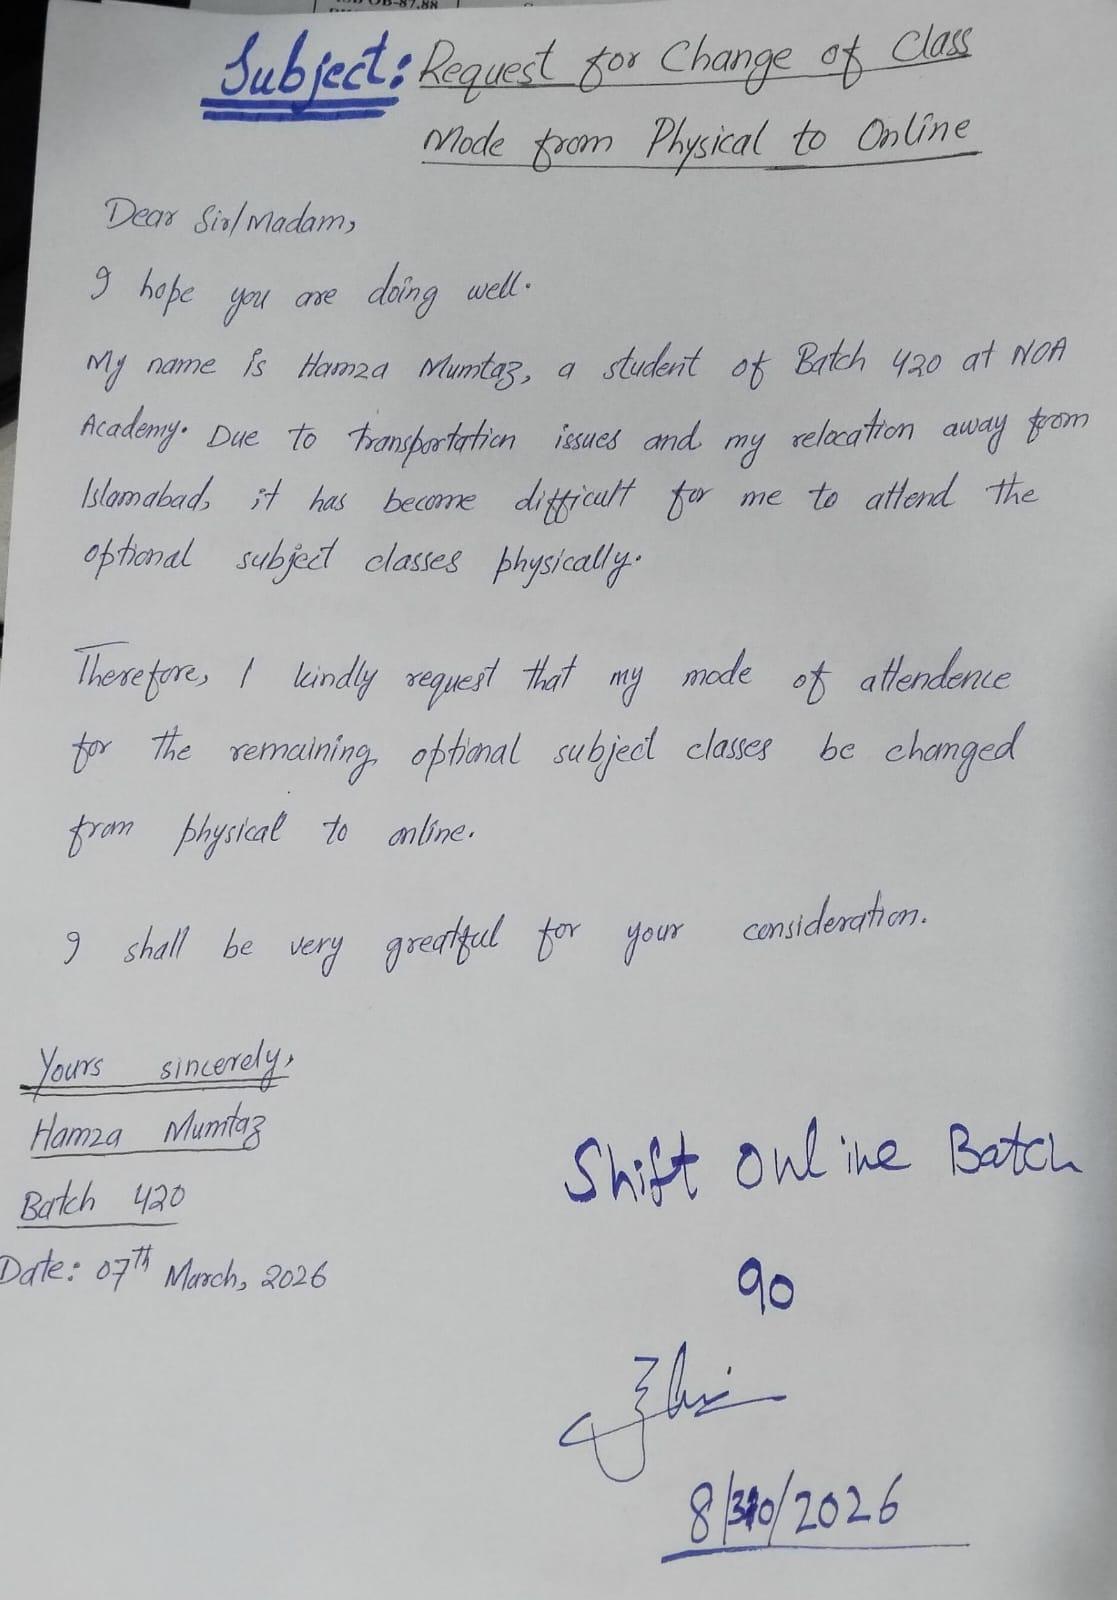 Subject: Request for Change of Class
Mode from Physical to Online
Dear Sir/Madam,
I hope you are doing well.
My name is Hamza Mumtaz, a student of Batch 420 at NOA
Academy. Due to transportation issues and my relocation away from
Islamabad, it has become difficult for me to attend the
optional subject classes physically.
Therefore, I kindly request that my mode of attendence
for the remaining optional subject classes be changed
from physical to online.
I shall be very greatful for your consideration.
Yours sincerely,
Hamza Mumtaz
Batch 420
Date: 07th March, 2026
Shift Online Batch
90
8/ /2026